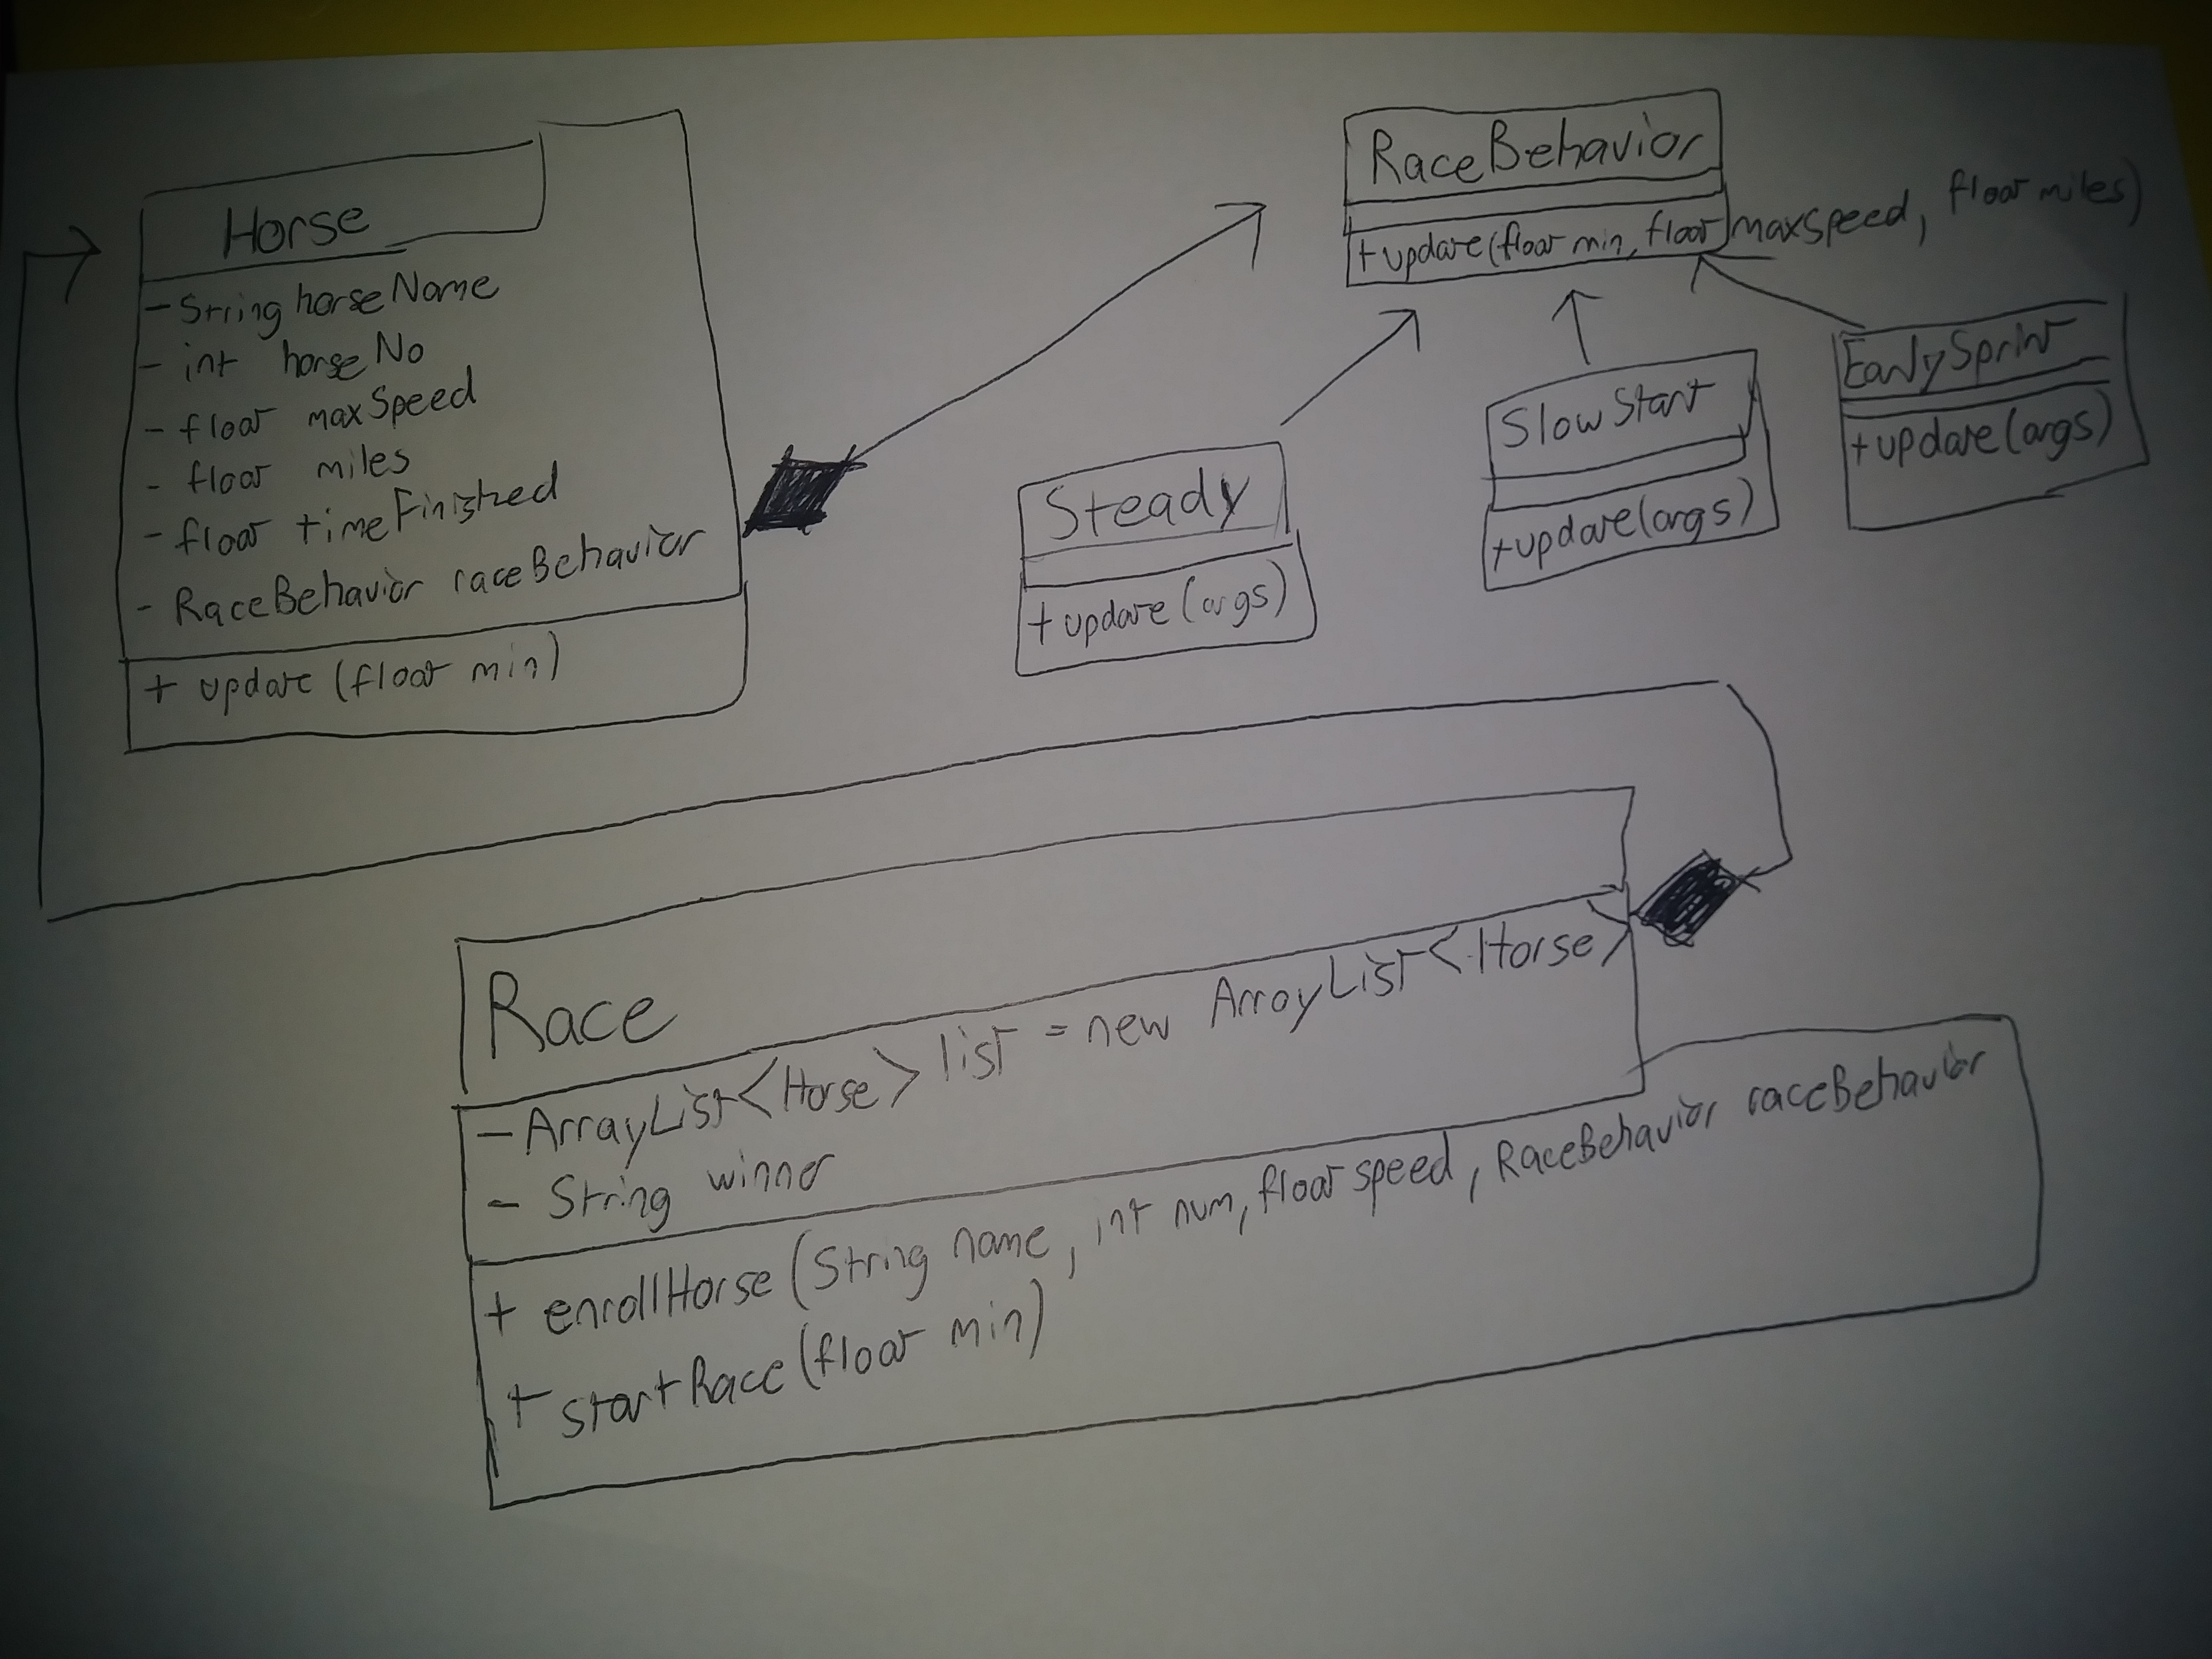 Horse
- String horseName
- int horseNo
- float maxSpeed
- float miles
- float timeFinished
- RaceBehavior raceBehavior
+ update (float min)
RaceBehavior
+ update(float min, float maxSpeed, float miles)
Steady
+ update (args)
SlowStart
+ update(args)
EarlySprint
+ update(args)
Race
- ArrayList<Horse> list = new ArrayList<Horse>
- String winner
+ enrollHorse (String name, int num, float speed, RaceBehavior raceBehavior
+ startRace (float min)